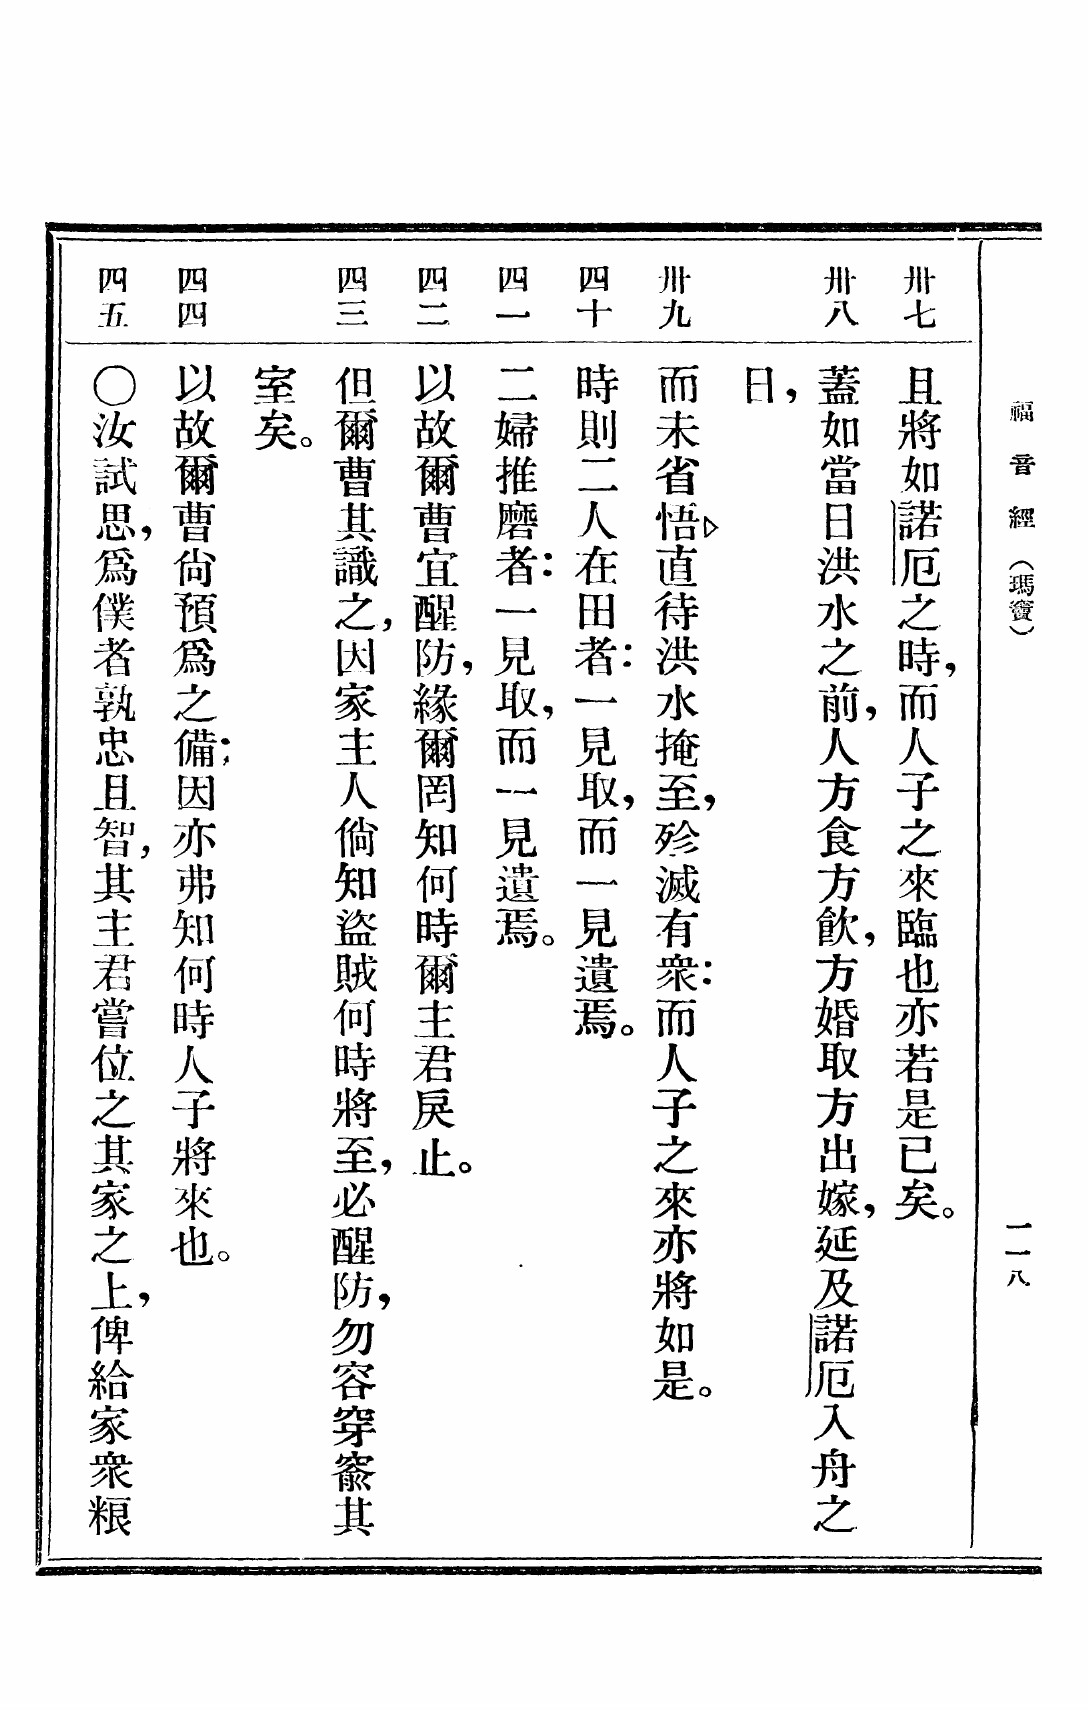 福音經（瑪竇）
一一八
卅七
且將如諾厄之時，而人子之來臨也亦若是已矣。
卅八
蓋如當日洪水之前，人方食方飲，方婚取方出嫁，延及諾厄入舟之
日，
卅九
而未省悟▷直待洪水掩至，殄滅有衆：而人子之來亦將如是。
四十
時則二人在田者：一見取，而一見遺焉。
四一
二婦推磨者：一見取，而一見遺焉。
四二
以故爾曹宜醒防，緣爾罔知何時爾主君戾止。
四三
但爾曹其識之，因家主人倘知盜賊何時將至，必醒防，勿容穿窬其
室矣。
四四
以故爾曹尙預爲之備；因亦弗知何時人子將來也。
四五
〇汝試思，爲僕者孰忠且智，其主君嘗位之其家之上，俾給家衆粮